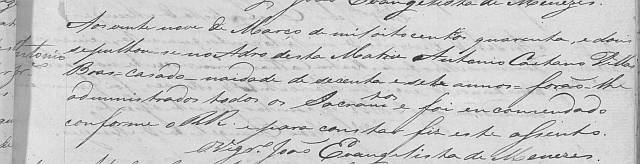 João Evangelista de Menezes.
Aos vinte nove de Março de mil oito centos quarenta, e dous
Antonio
sepultou-se no Adro desta Matriz Antonio Caetano Villas
Boas = casado = na idade de secenta e sete annos = forão-lhe
administrados todos os Sacramtos e foi encomendado
conforme o RR. e para constar fiz este assento.
O Vigrº João Evangelista de Menezes